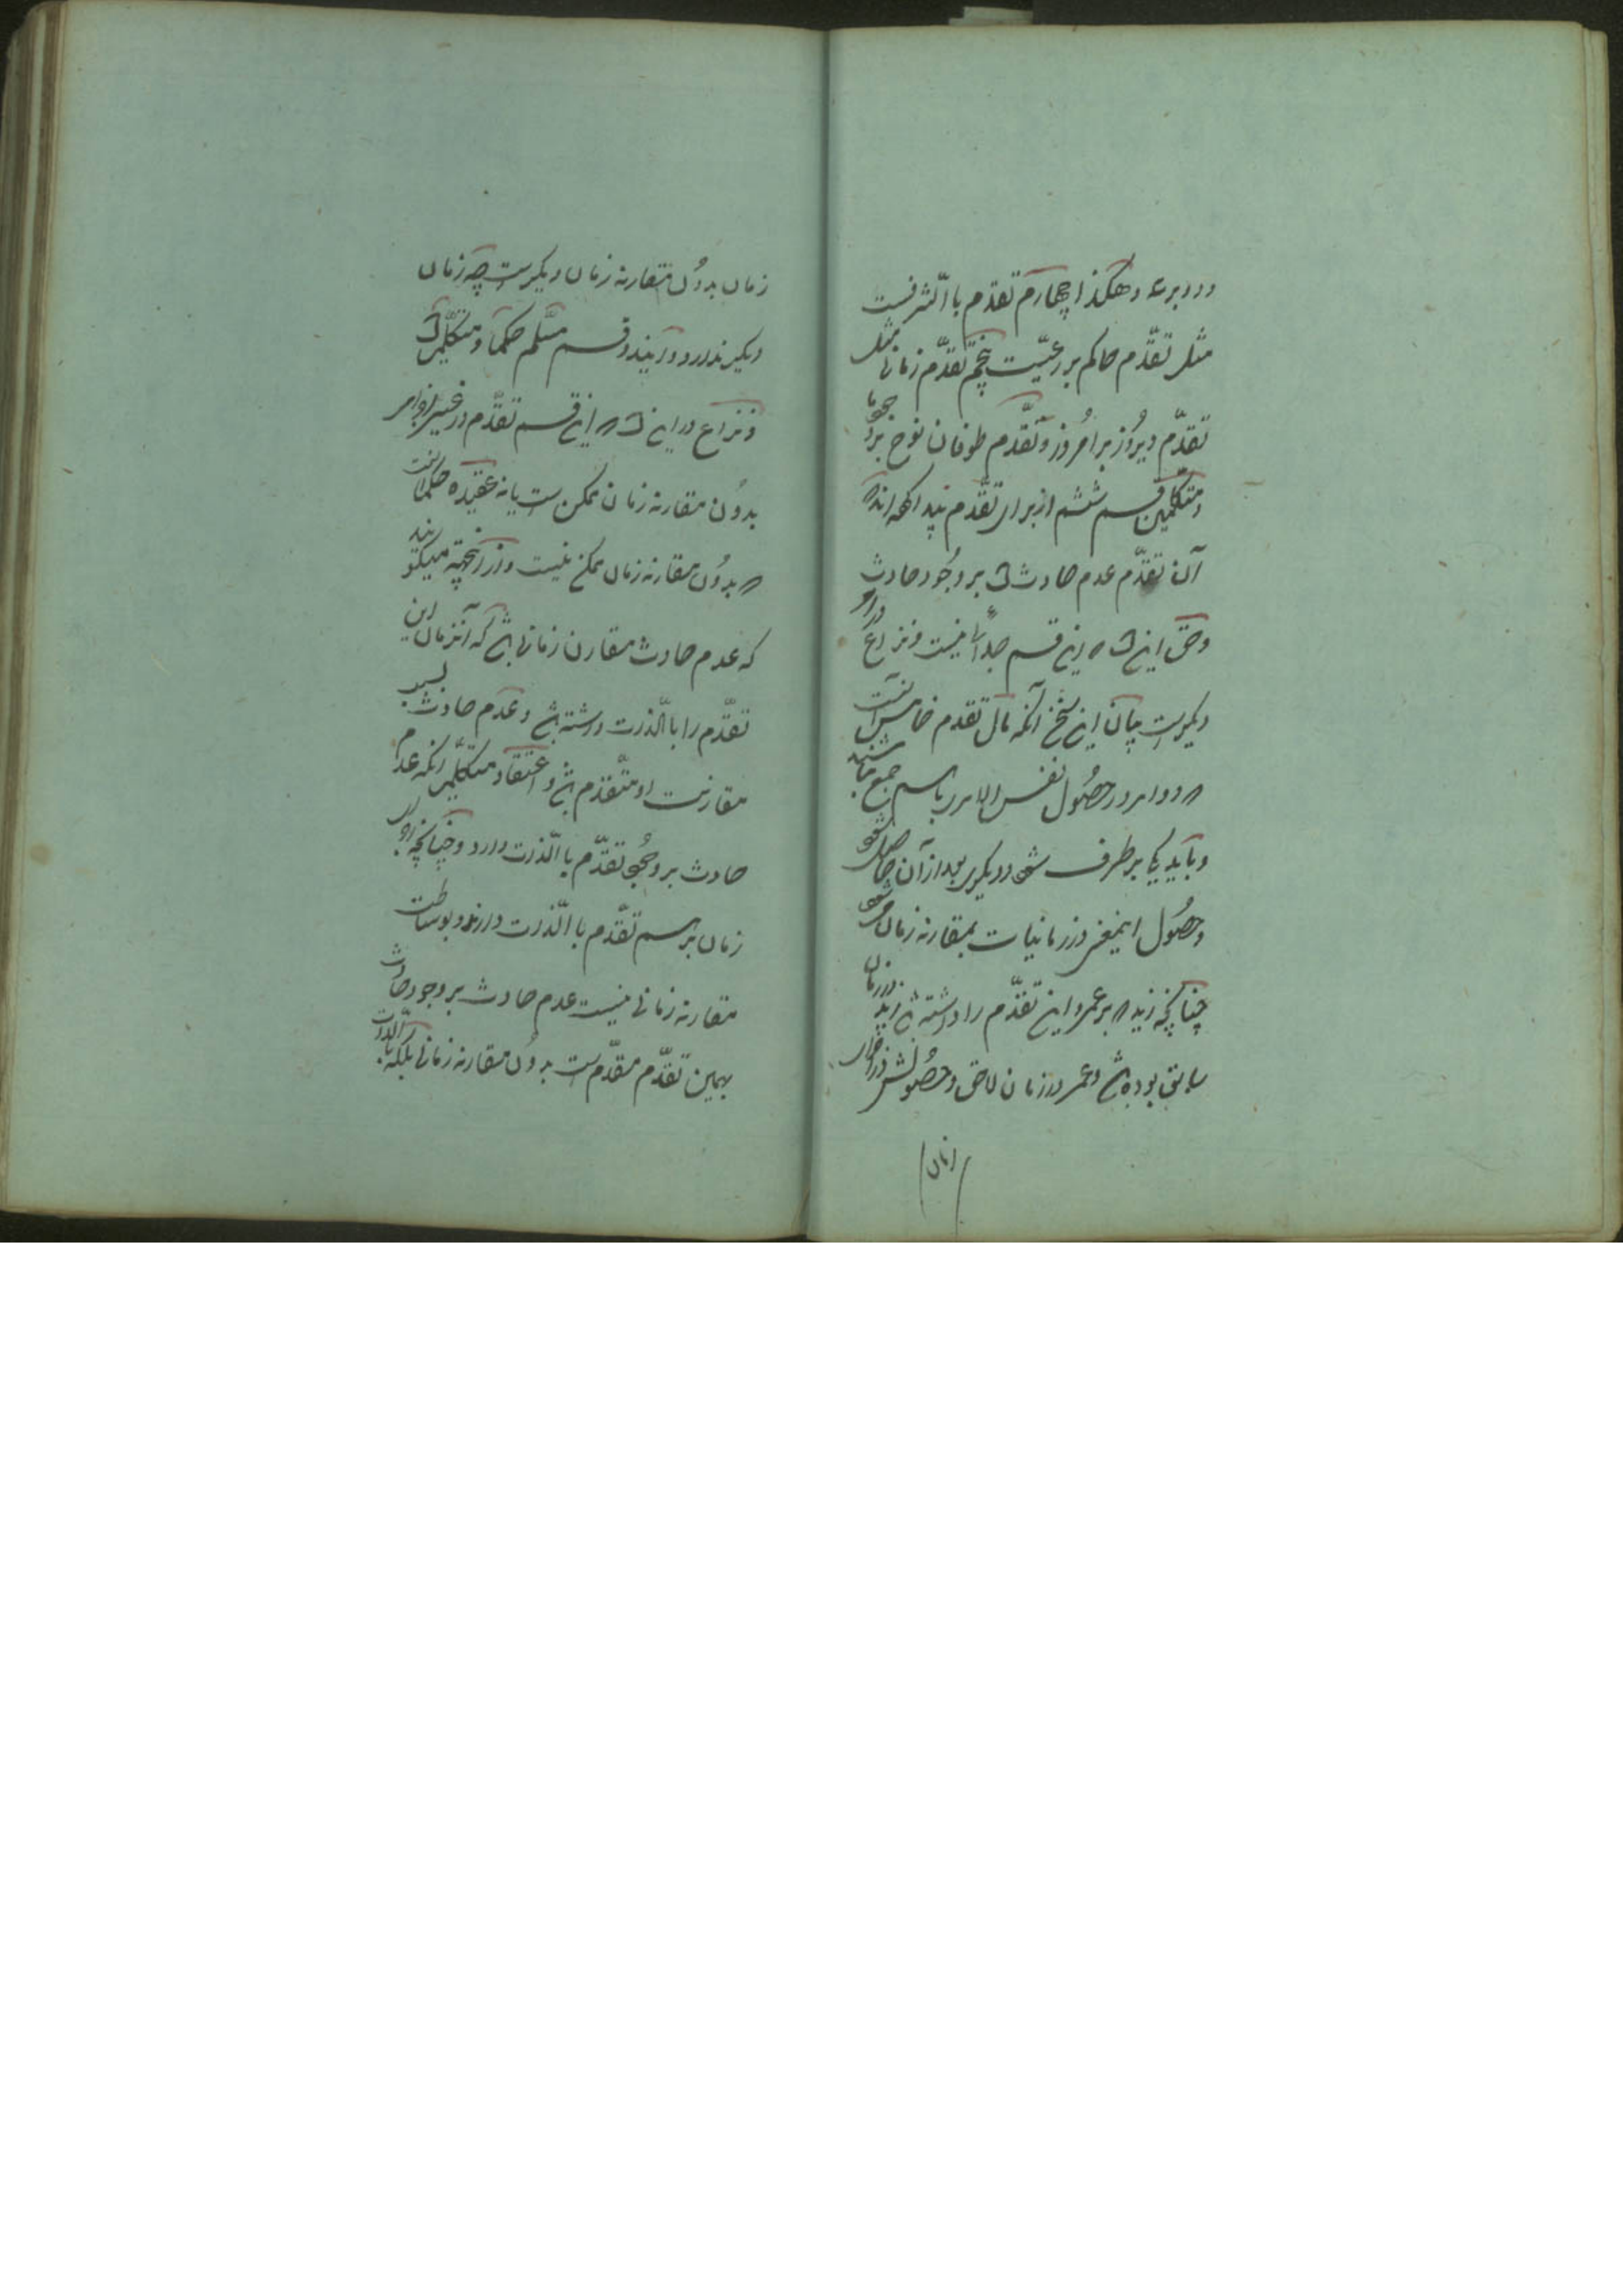 و دو بر سه و هکذا چهارم تقدّم باالّشرفست
مثل تقدّم حاکم بر رعیّت پنجم تقدّم زمانی مثل
تقدّم دیروز بر امروز و تقدّم طوفان نوح بر
و متکلمین قسم ششم از برای تقدّم پیدا کرده‌اند که
آن تقدّم عدم حادث است بر وجود حادث
و حق این است که این قسم جدا نیست و نزاع در امر
دیگریست بیان این سخن آنکه مآل تقدم خامس آنست
که دو امر در حصول نفس الامر باهم جمع نباشند
و باید یکی برطرف شود و دیگری بعد از آن حاصل شود
و حصول اینمعنی در زمانیات بمقارنه زمان میشود
چنانچه زید که بر عمرو این تقدّم را داشته باشد زید در زمان
سابق بوده باشد و عمر در زمان لاحق و حصولش در اجزای
زمان
زمان بدون مقارنه زمان دیگریست چه زمان
دیگر ندارد و در ایندو قسم مسلّم حکما و متکلّمین است
و نزاع در این است که این قسم تقدّم در غیر اجزای
بدون مقارنه زمان ممکن هست یا نه عقیده حکما آنست
که بدون مقارنه زمان ممکن نیست و از اینجهت میگویند
که عدم حادث مقارن زمانی باشد که آنزمان این
تقدّم را باالّذات داشته باشد و عدم حادث بسبب
مقارنت او متقدّم باشد و اعتقاد متکلّمین آنکه عدم
حادث بر وجود تقدّم باالّذات دارد و چنانچه اجزای
زمان برهم تقدّم باالّذات دارند و بوساطت
مقارنه زمانی نیست عدم حادث بر وجود حادث
بهمین تقدّم مقدّم است بدون مقارنه زمانی بلکه باالّذات